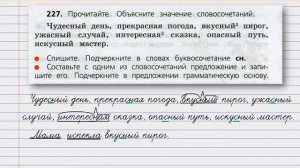 227. Прочитайте. Объясните значение словосочетаний.
Чудесный день, прекрасная погода, вкусный² пирог,
ужасный случай, интересная⁶ сказка, опасный путь,
искусный мастер.
Спишите. Подчеркните в словах буквосочетание сн.
Составьте с одним из словосочетаний предложение и запи-
шите его. Подчеркните в предложении грамматическую основу.
Чудесный день, прекрасная погода, вкусный пирог, ужасный
случай, интересная сказка, опасный путь, искусный мастер.
Мама испекла вкусный пирог.